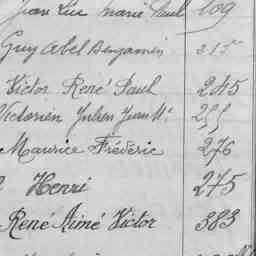 Jean Luc Marie Paul 109
Guy Abel Benjamin 215
Victor René Paul 245
Victorien Julien Jean Mie 255
Maurice Fréderic 276
Henri 275
René Aimé Victor 383